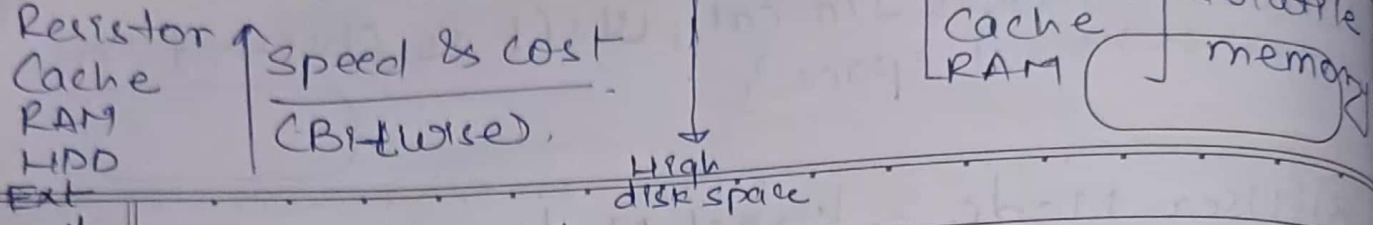 Resistor
Cache
RAM
HDD
Ext
Speed & cost
(Bitwise).
High
disk space
Cache
RAM
memory